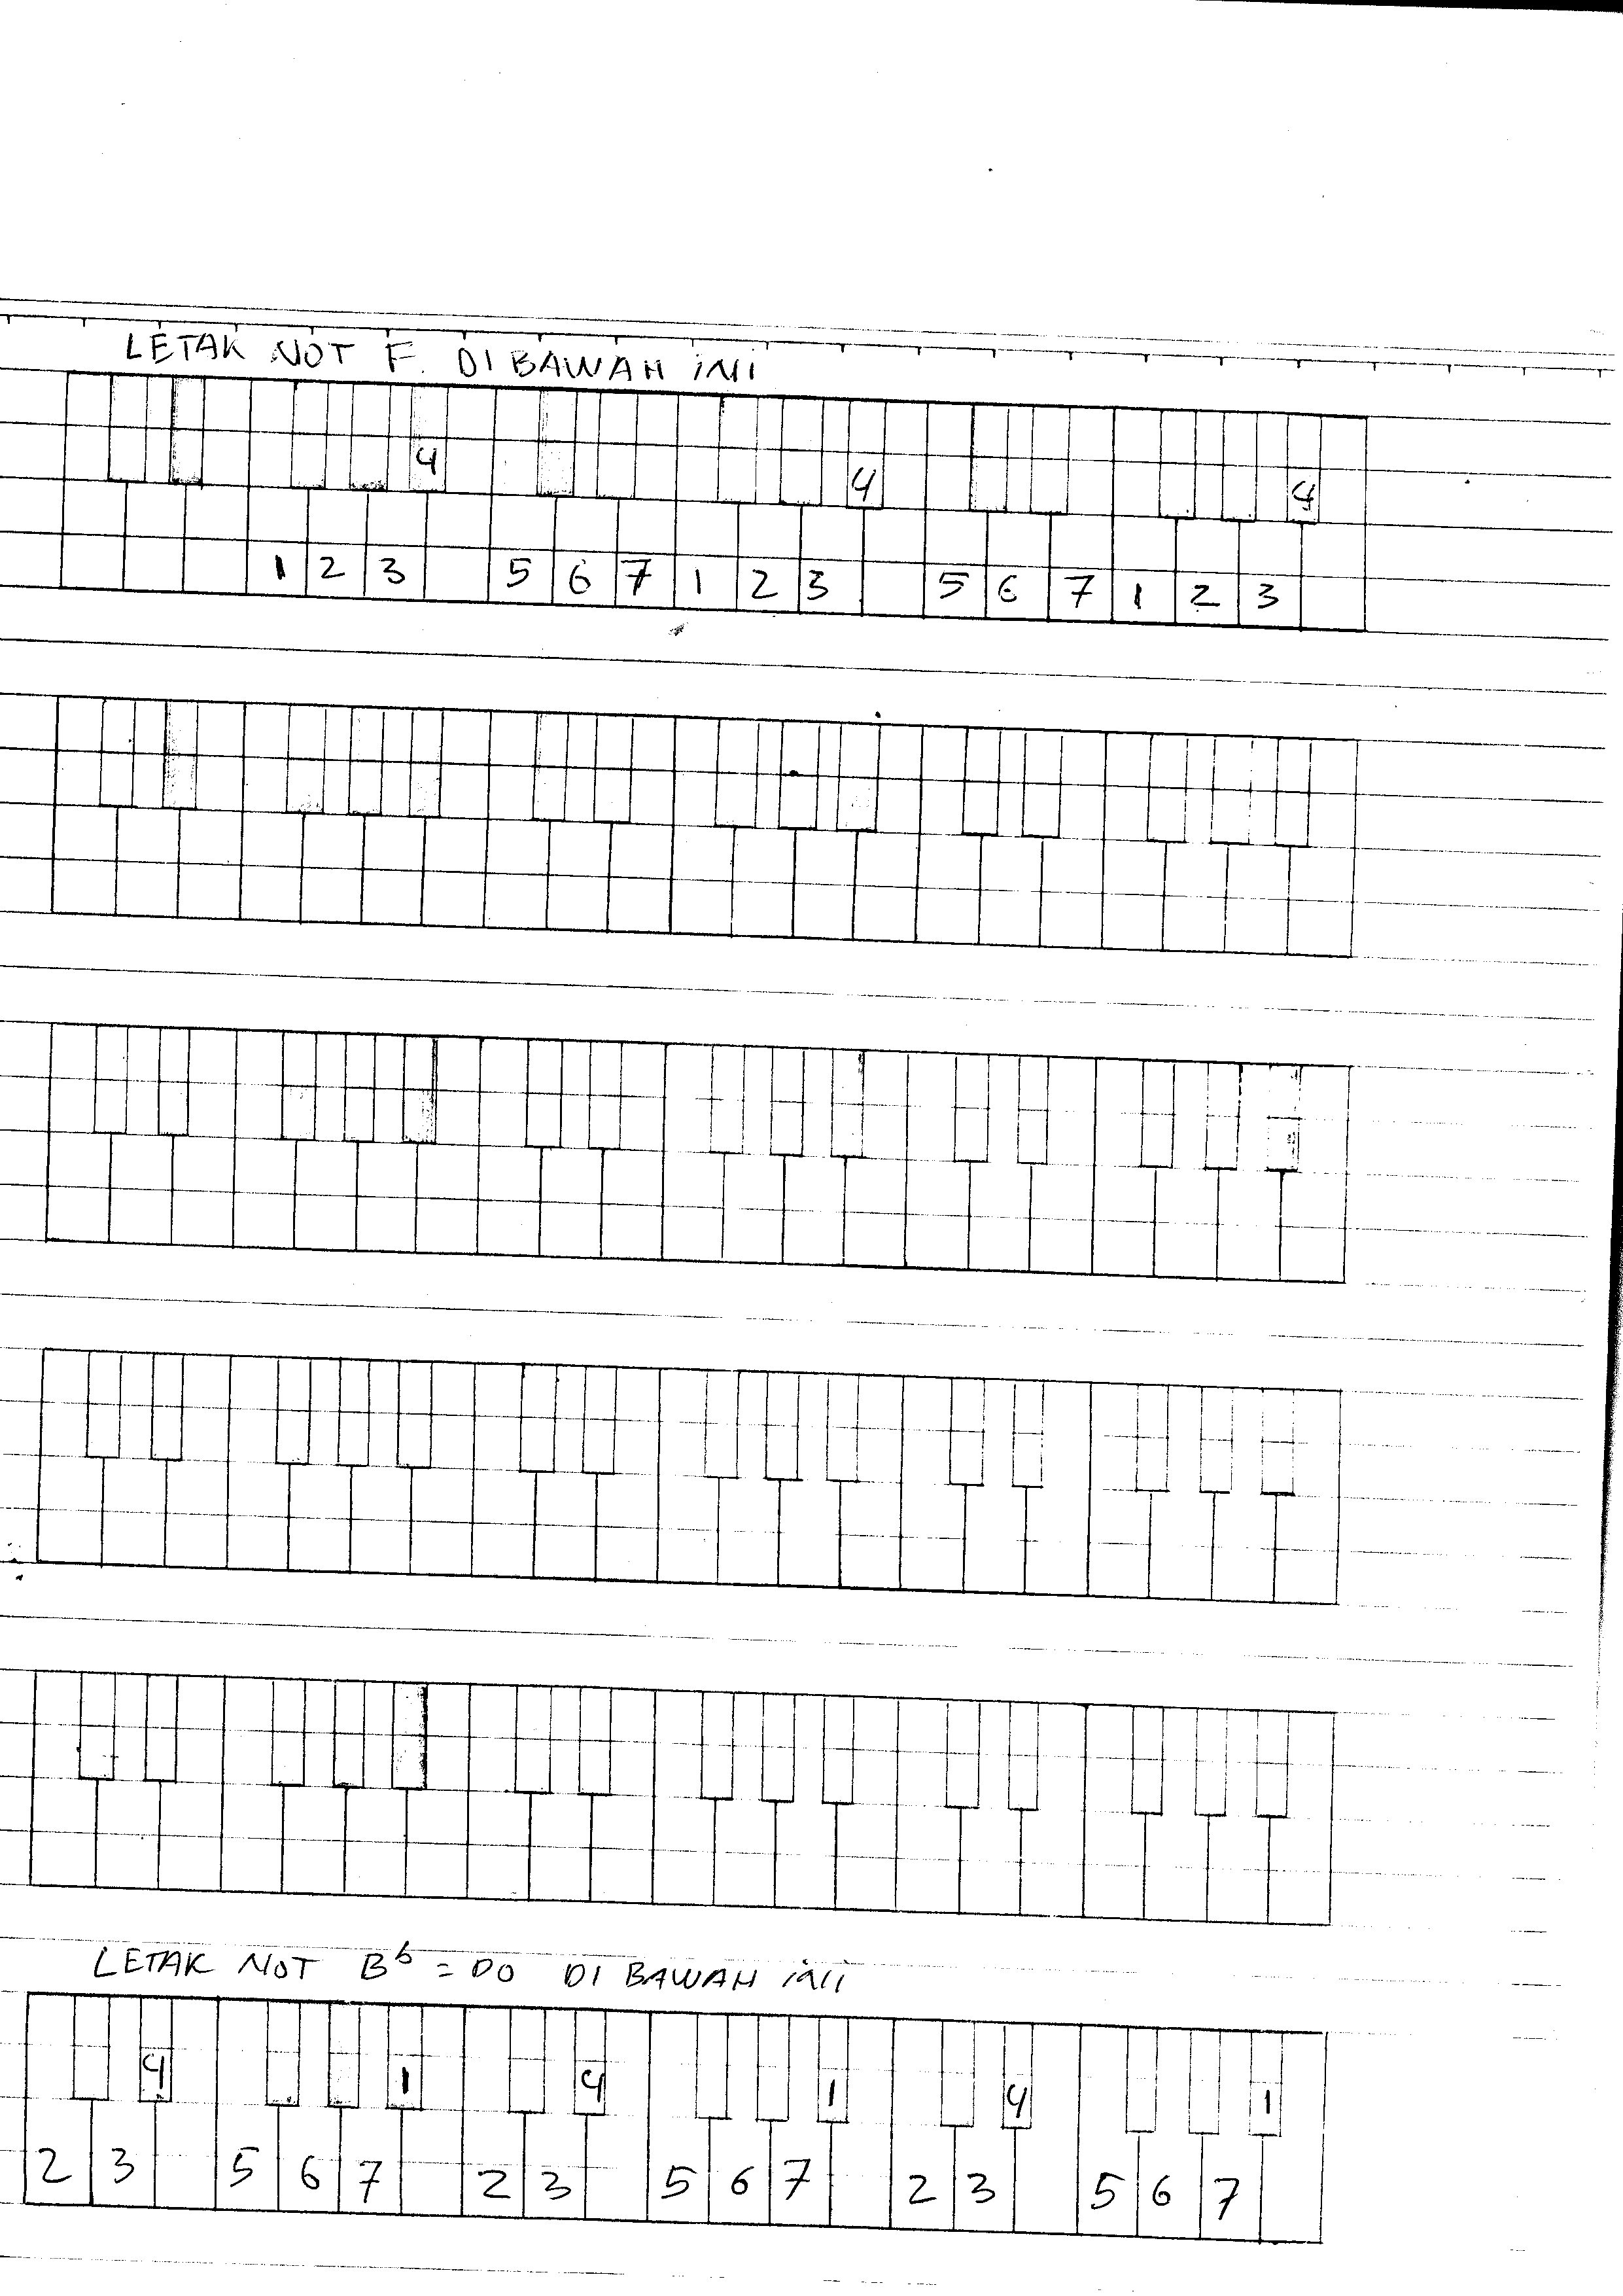 LETAK NOT F. DI BAWAH iNi
4 4 4
1 2 3 5 6 7 1 2 3 5 6 7 1 2 3
LETAK NOT Bb = DO DI BAWAH iNi
4 1 4 1 4 1
2 3 5 6 7 2 3 5 6 7 2 3 5 6 7